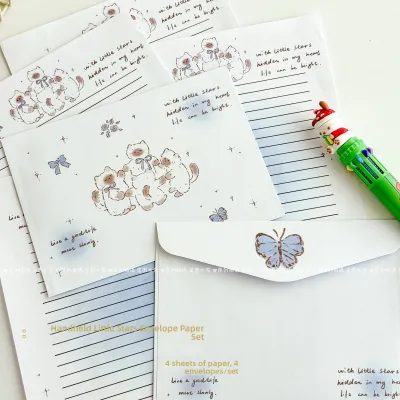 with little stars
hidden in my heart,
life can be bright.
with little stars
hidden in my heart,
life can be bright.
with little stars
hidden in my heart,
life can be bright.
live a good life
live a good life
+ more starry.
Handheld Little Stars Envelope Paper
Set
4 sheets of paper, 4
envelopes/set
live a good life
+ more starry.
with little stars
hidden in my heart
life can be bright.